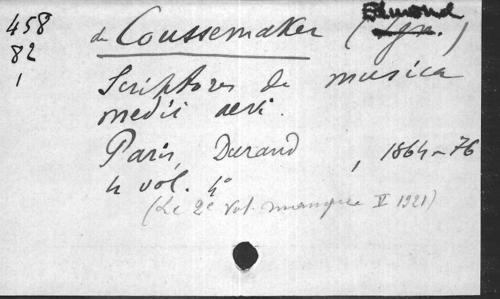 458
82
1
de Coussemaker (Edmond)
Scriptores de musica
medii aevi.
Paris, Durand, 1864-76
4 vol. 4°
(Le 2e vol. manque V 1921)